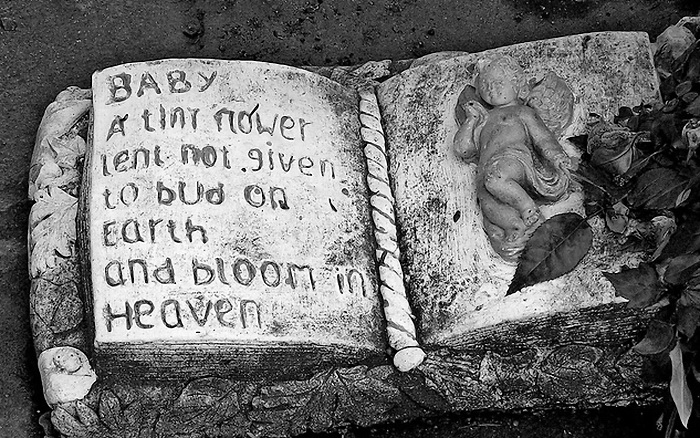 BABY
A tiny flower
lent not given
to bud on
Earth
and bloom in
Heaven